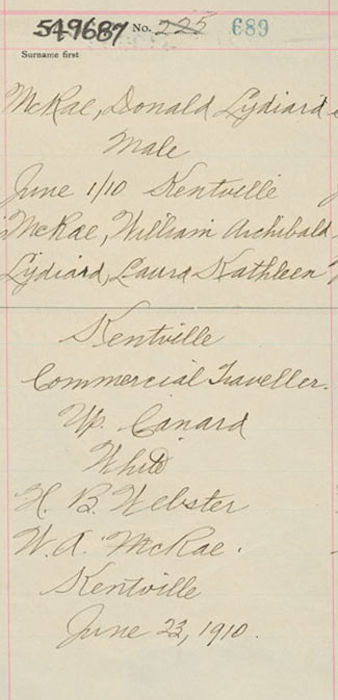 549687 No. 225 689
Surname first
McRae, Donald Lydiard
Male
June 1/10 Kentville
McRae, William Archibald
Lydiard, Laura Kathleen
Kentville
Commercial Traveller.
Up. Canard
White
H. B. Webster
W. A. McRae.
Kentville
June 23, 1910.